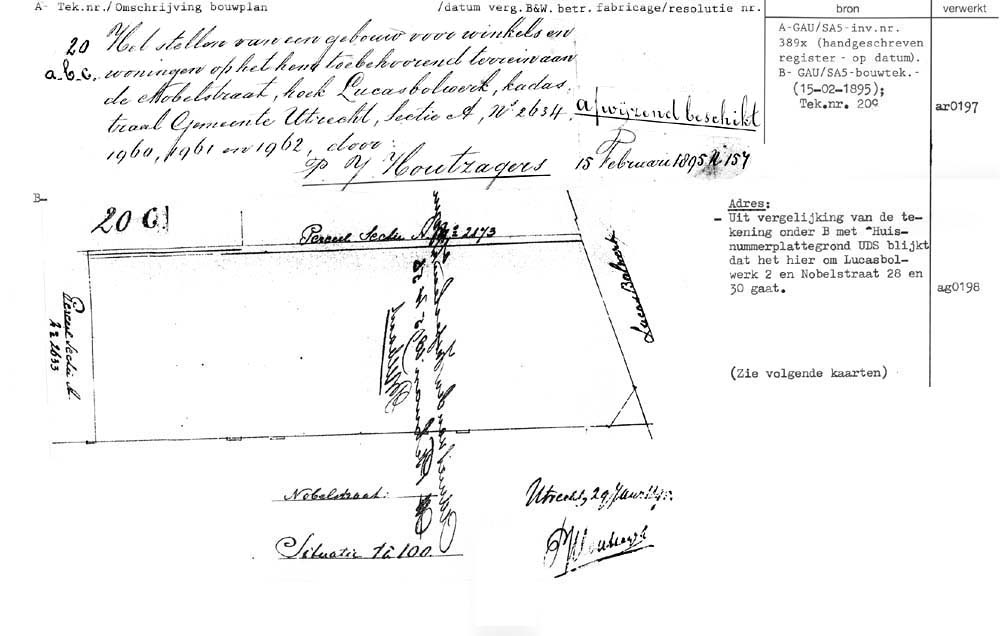 A- Tek.nr./Omschrijving bouwplan /datum verg.B&W. betr. fabricage/resolutie nr. bron verwerkt
20 Het stellen van een gebouw voor winkels en
a.b.c. woningen op het hem toebehoorend terrein aan
de Nobelstraat, hoek Lucasbolwerk, kadas
traal Gemeente Utrecht, Sectie A, No 2634
1960, 1961 en 1962, door:
P. J. Houtzagers
afwijzend beschikt
15 Februari 1895 N 157
A-GAU/SA5-inv.nr.
389x (handgeschreven
register - op datum).
B- GAU/SA5-bouwtek.-
(15-02-1895);
Tek.nr. 20c
ar0197
B-
20 C
Perceel Sectie A No 2173
Perceel Sectie A
No 2633
Lucas Bolwerk
Nobelstraat.
Situatie 1 à 100.
Utrecht, 29 Januari
PJHoutzagers
Adres:
- Uit vergelijking van de te-
kening onder B met "Huis-
nummerplattegrond UDS blijkt
dat het hier om Lucasbol-
werk 2 en Nobelstraat 28 en
30 gaat.
ag0198
(Zie volgende kaarten)